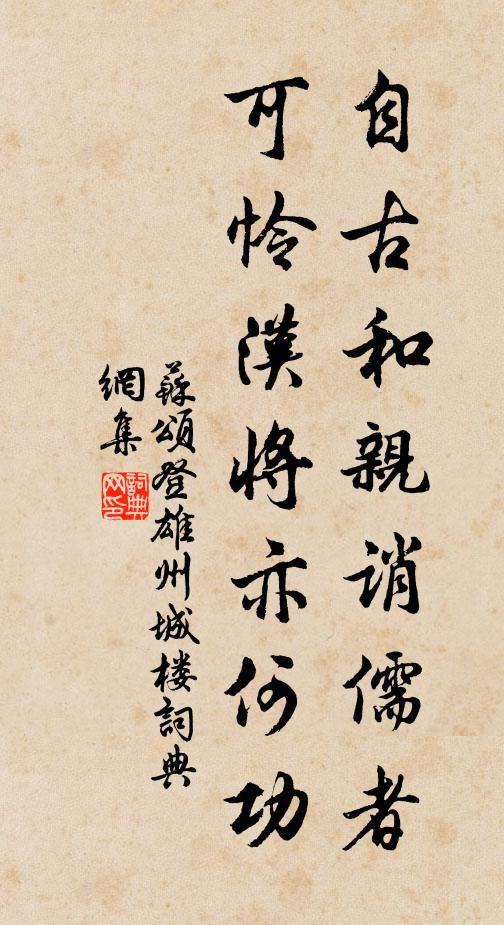 自古和親誚儒者
可怜漢將亦何功
蘇頌登雄州城楼詞典
網集
詞典网印